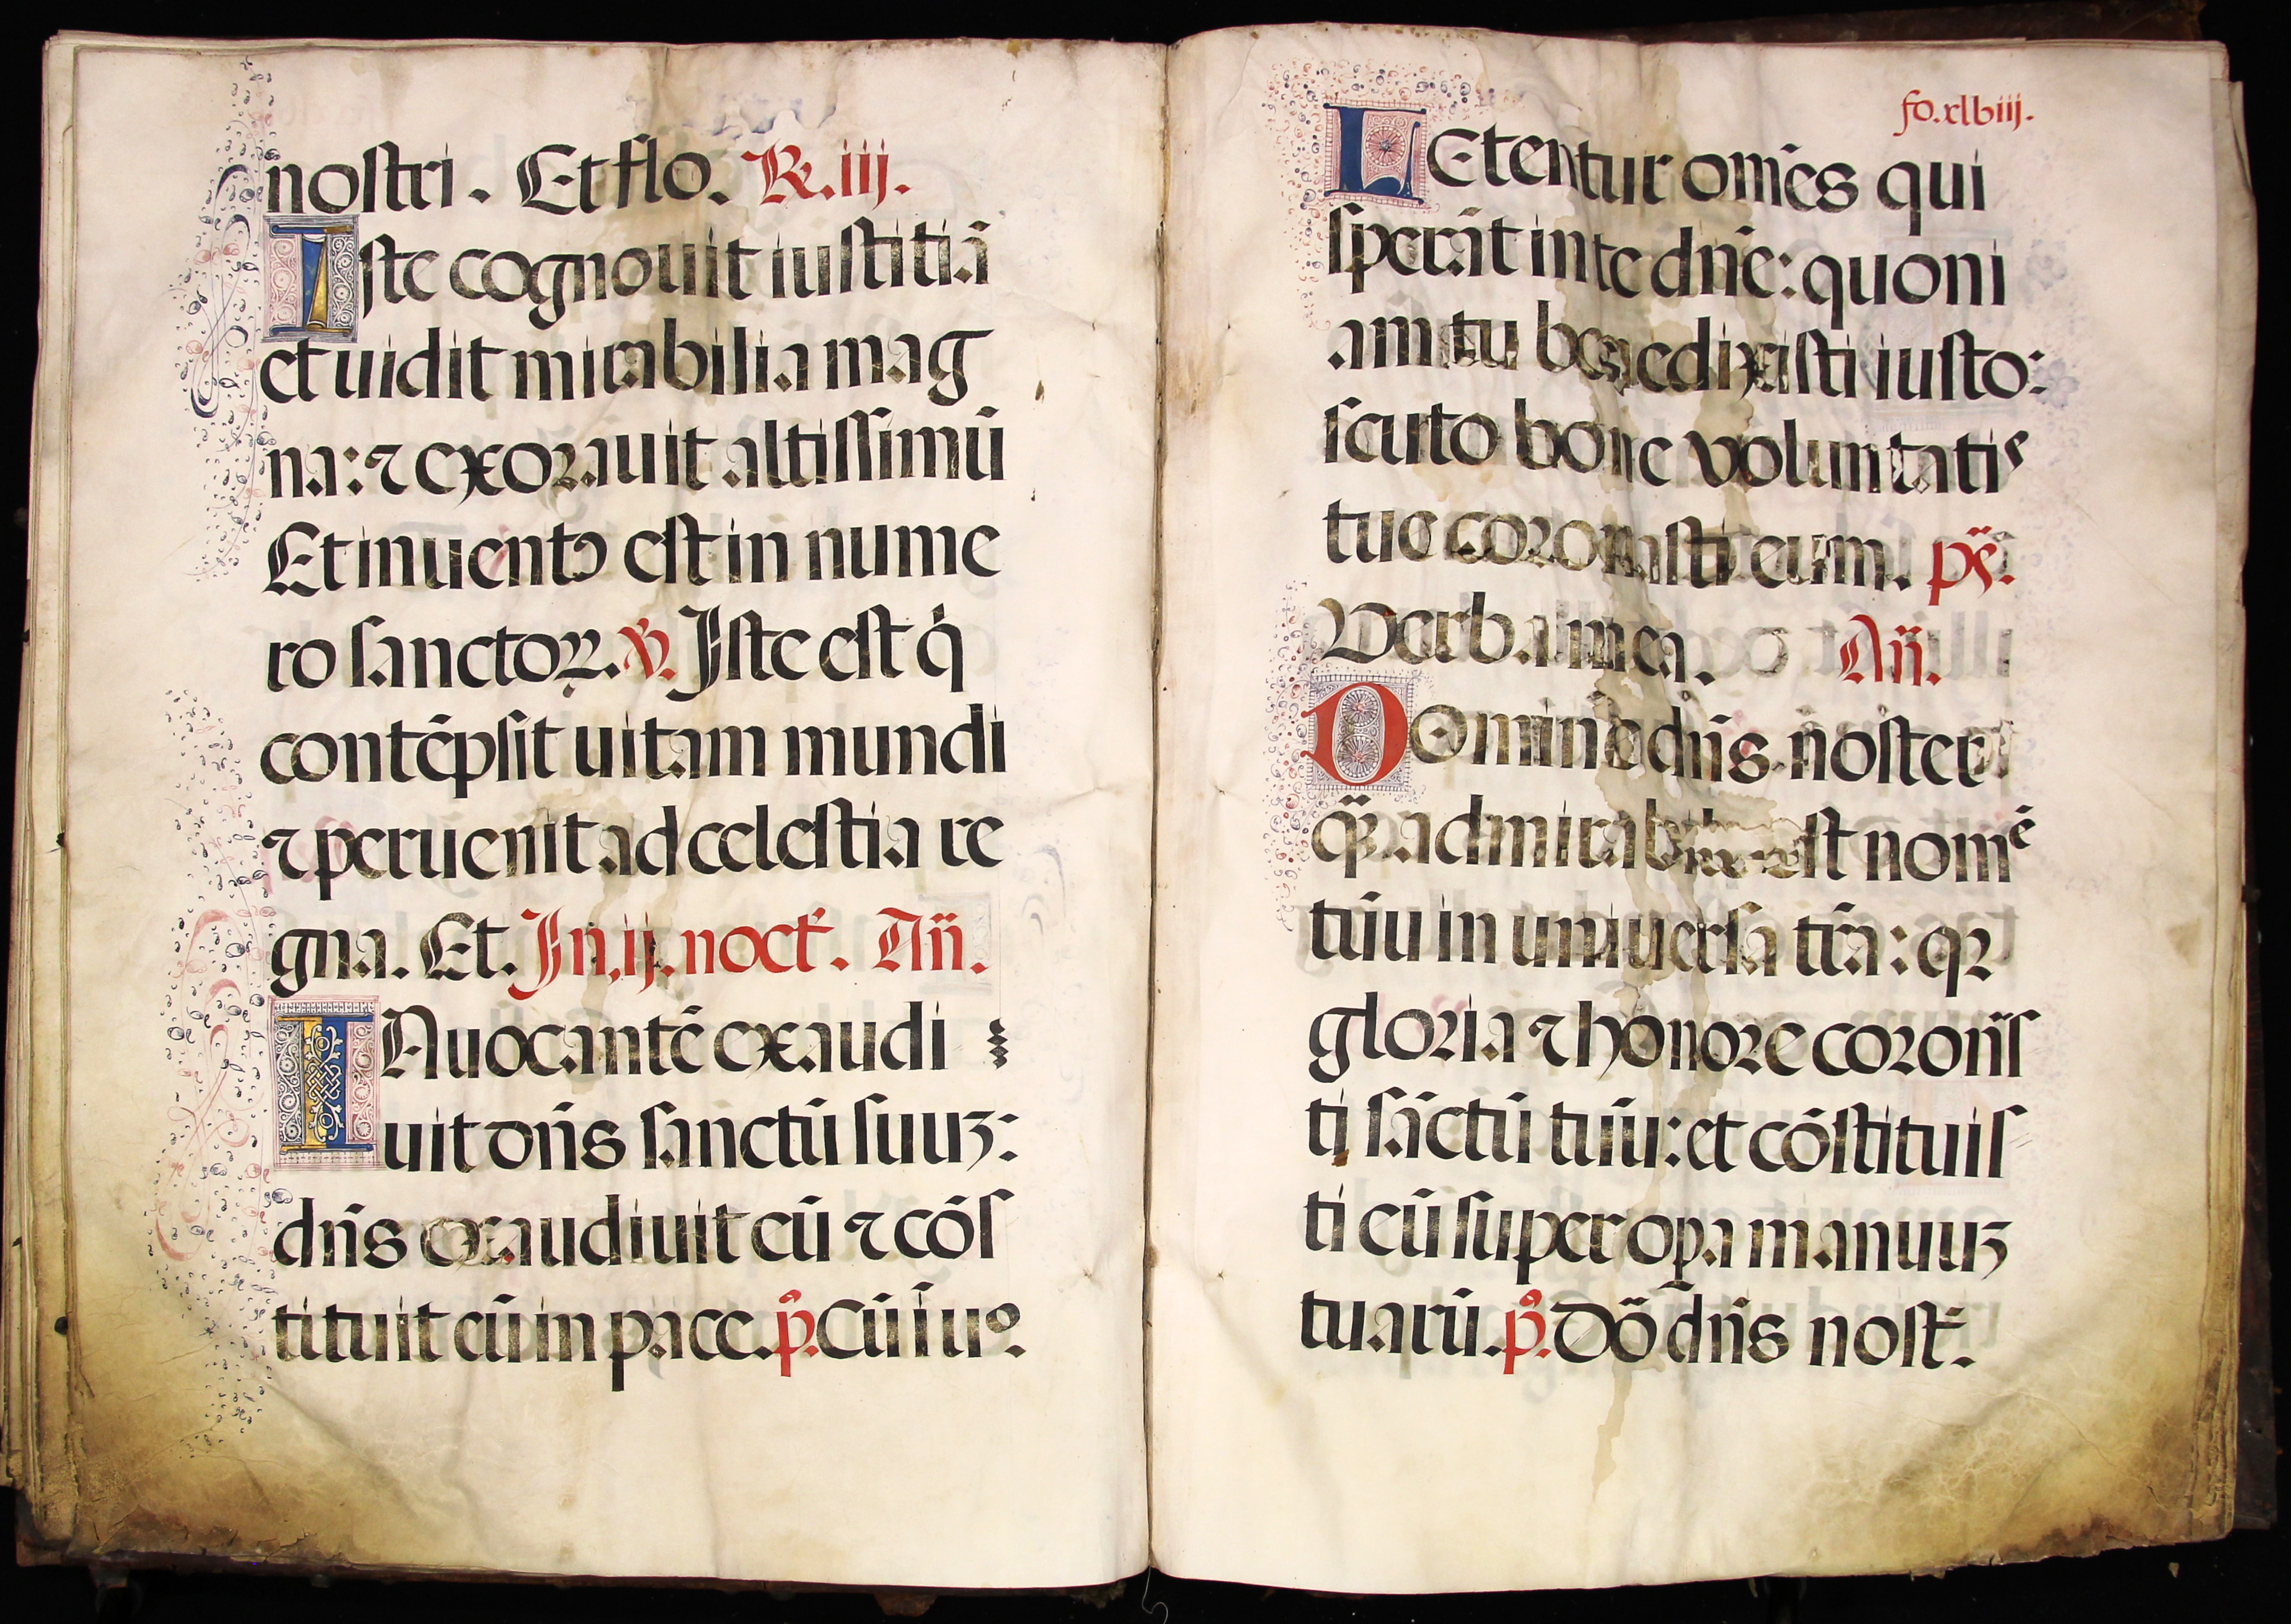 nostri. Et flo. R̃. iij.
Iste cognouit iustitiā
et uidit mirabilia mag
na: ⁊ exorauit altissimū
Et inuentꝰ est in nume
ro sanctoꝝ. ℣. Iste est q̇
contēpsit uitam mundi
⁊ peruenit ad celestia re
gna. Et. In. ij. noct̃. An̄.
INuocantē exaudi
uit dn̄s sanctū suuȝ:
dn̄s exaudiuit eū ⁊ cōs
tituit eū in pace. p̄. Cū īuo.
fo. xlviij.
LEtentur om̄es qui
sperāt in te dn̄e: quoni
am tu benedixisti iusto:
scuto bone voluntatis
tue coronasti eum. ps̄.
Verba mea. An̄.
DOmine dn̄s noster
q̄ꝫ admirabile est nomē
tūu in uniuersa tr̄a: qꝛ
gloria ⁊ honore coron̄s
ti sāctū tūu: et cōstituis
ti eū super oꝑa manuuȝ
tuarū. p̄. Dō dn̄s nost̃.